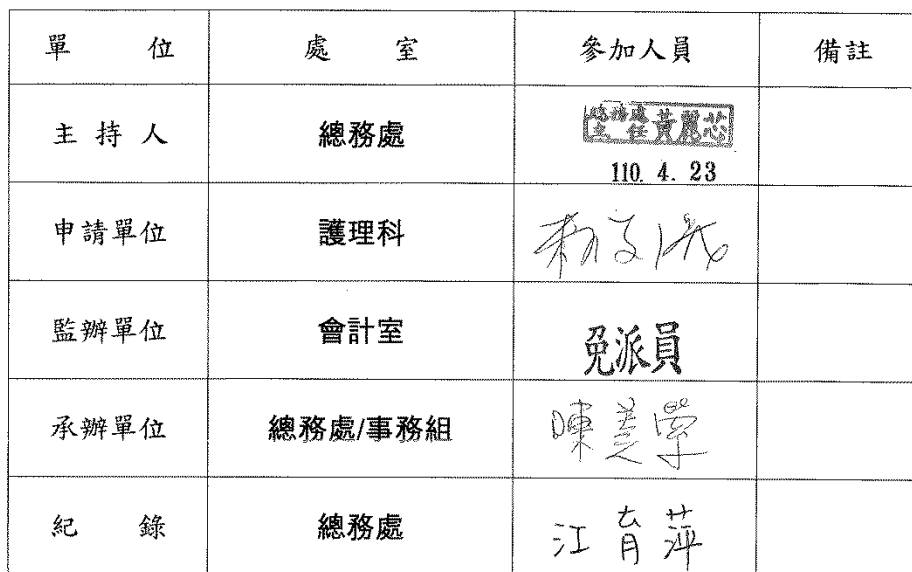 單 位 處 室 參加人員 備註
主 持 人 總務處 總務處主任黃麗芯
110. 4. 23
申請單位 護理科
監辦單位 會計室 免派員
承辦單位 總務處/事務組 陳美學
紀 錄 總務處 江育萍